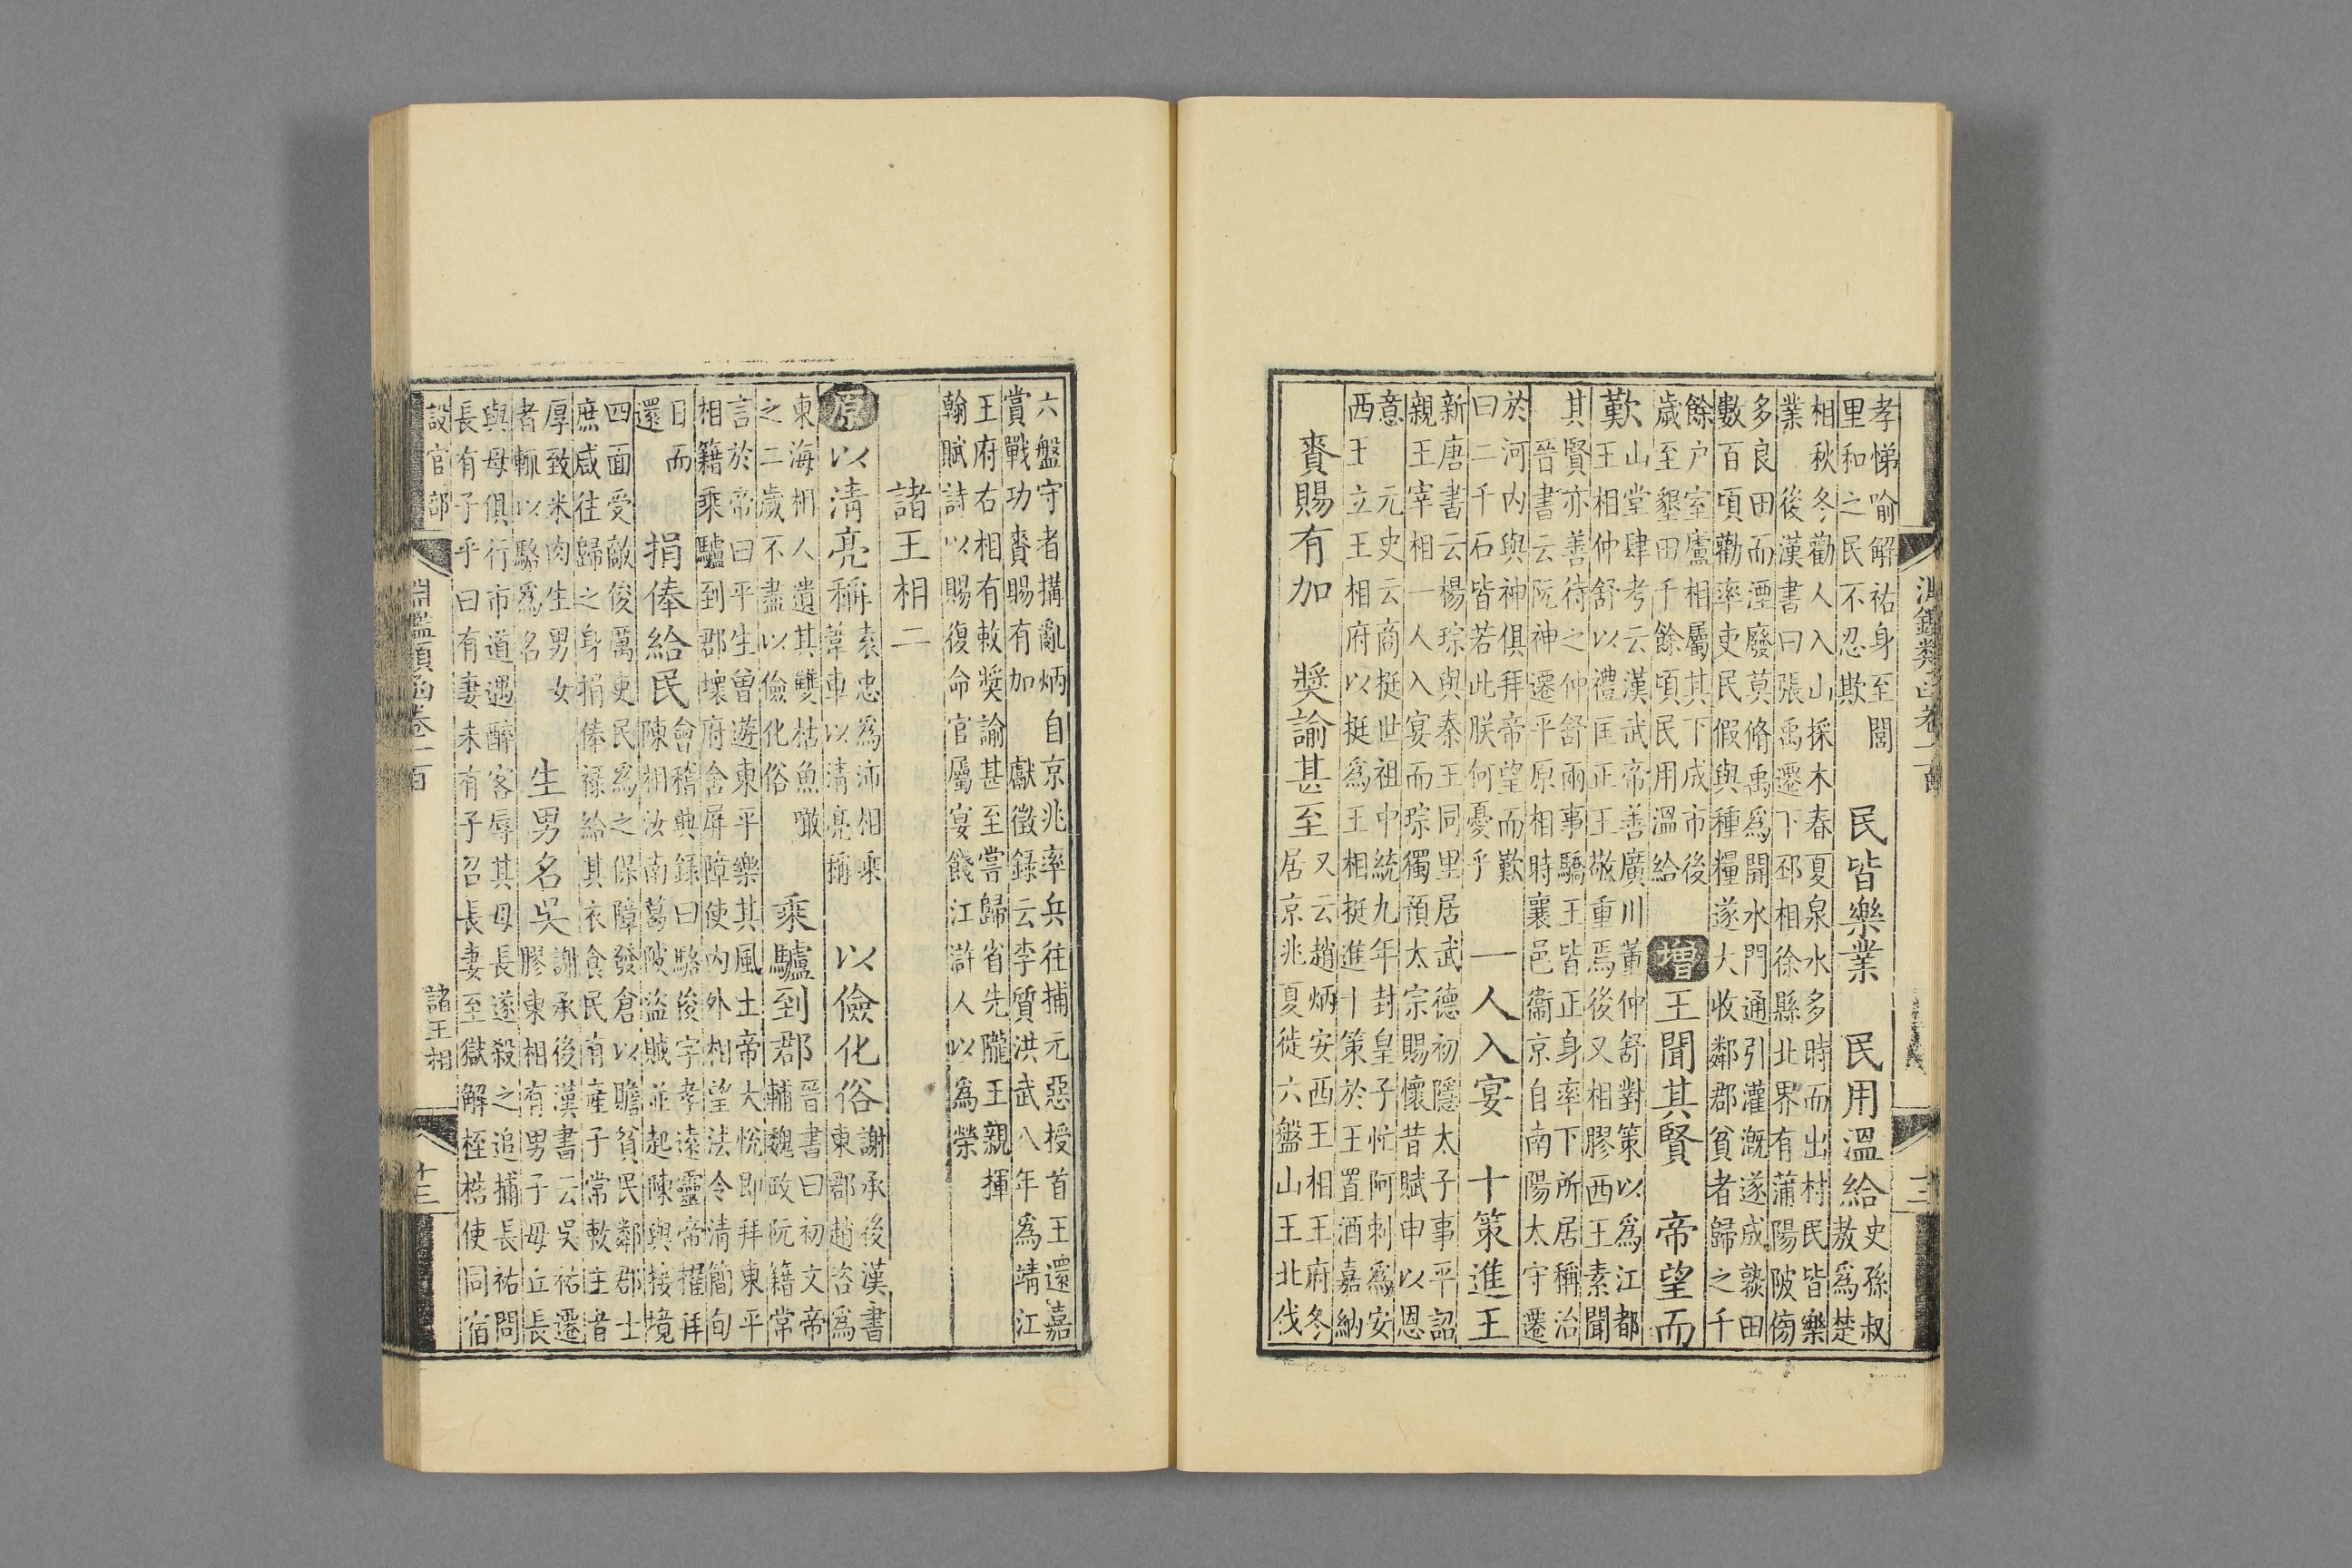 孝悌喻解祐身至閣
里和之民不忍欺
民皆樂業　民用溫給
史孫叔
敖為楚
相秋冬勸人入山採木春夏泉水多時而出村民皆樂
業　後漢書曰張禹遷下邳相徐縣北界有蒲陽陂傍
多良田而湮廢莫脩禹為開水門通引灌漑遂成熟田
數百頃勸率吏民假與種糧遂大收鄰郡貧者歸之千
餘户室廬相屬其下成市後
歲至墾田千餘頃民用溫給
增　王聞其賢　帝望而
歎
山堂肆考云漢武帝善廣川董仲舒對策以為江都
王相仲舒以禮匡正王敬重焉後又相膠西王素聞
其賢亦善待之仲舒兩事驕王皆正身率下所居稱治
晉書云阮神遷平原相時襄邑衞京自南陽太守遷
於河内與神俱拜帝望而歎
曰二千石皆若此朕何憂乎
一人入宴　十策進王
新唐書云楊琮與秦王同里居武德初隱太子事平詔
親王宰相一人入宴而琮獨預太宗賜懷昔賦申以恩
意　元史云商挺世祖中統九年封皇子忙阿刺為安
西王立王相府以挺為王相挺進十策於王置酒嘉納
賚賜有加　獎諭甚至
又云趙炳安西王相王府冬
居京兆夏徙六盤山王北伐
六盤守者搆亂炳自京兆率兵往捕元惡授首王還嘉
賞戰功賚賜有加　獻徵錄云李質洪武八年為靖江
王府右相有敕獎諭甚至嘗歸省先隴王親揮
翰賦詩以賜復命官屬宴餞江滸人以為榮
諸王相二
原　以清亮稱
袁忠為沛相乘
葦車以清亮稱
以儉化俗
謝承後漢書
東郡趙咨為
東海相人遺其雙枯魚噉
之二歲不盡以儉化俗
乘驢到郡
晉書曰初文帝
輔魏政阮籍常
言於帝曰平生曾遊東平樂其風土帝大悅即拜東平
相籍乘驢到郡壞府舍屏障使内外相望法令清簡旬
日而
還
捐俸給民
會稽典錄曰駱俊字孝遠靈帝擢拜
陳相汝南葛陂盜賊並起陳與接境
四面受敵俊厲吏民為之保障發倉以贍貧民鄰郡士
庶咸往歸之身捐俸祿給其衣食民有產子常敕主者
厚致米肉生男女
者輒以駱為名
生男名吳
謝承後漢書云吳祐遷
膠東相有男子毋丘長
與母俱行市道遇醉客辱其母長遂殺之追捕長祐問
長有子乎曰有妻未有子召長妻至獄解桎梏使同宿
設官部
淵鑑類函卷一百
諸王相
十三